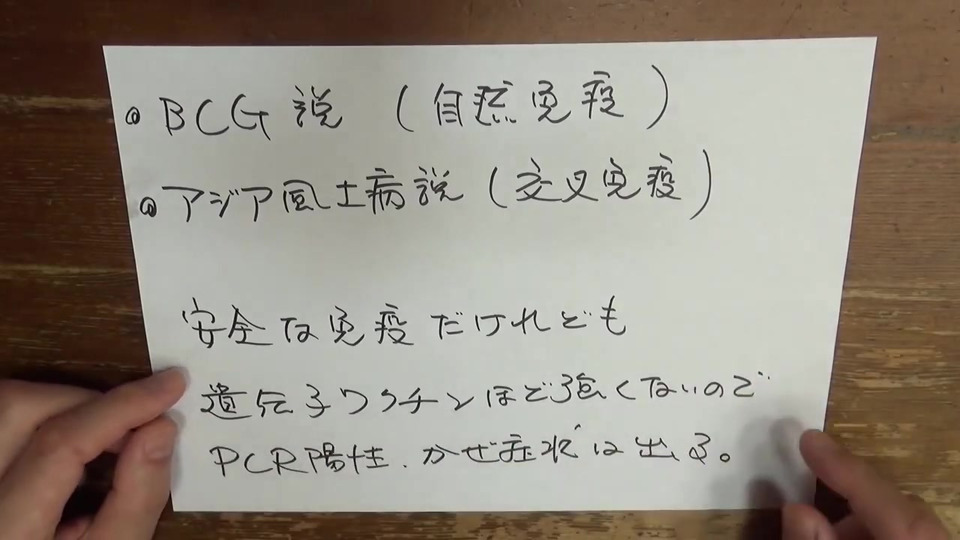 • BCG説 (自然免疫)
• アジア風土病説 (交叉免疫)
安全な免疫だけれども
遺伝子ワクチンほど強くないので
PCR陽性、かぜ症状は出る。